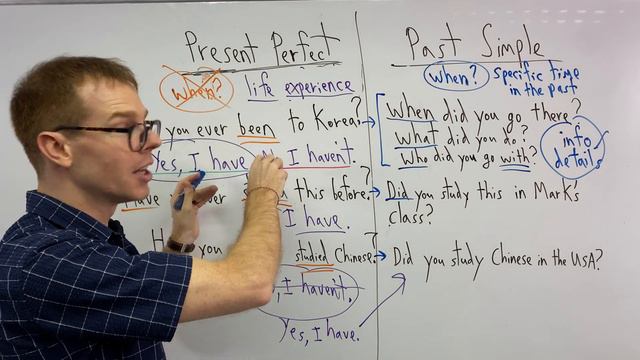 Present Perfect
When?
life experience
you ever been to Korea?
Yes, I have I haven't.
Have ver this before?
I have.
H you studied Chinese?
I haven't.
Yes, I have.
Past Simple
When? specific time
in the past
When did you go there?
What did you do?
Who did you go with?
info
details
Did you study this in Mark's
class?
Did you study Chinese in the USA?